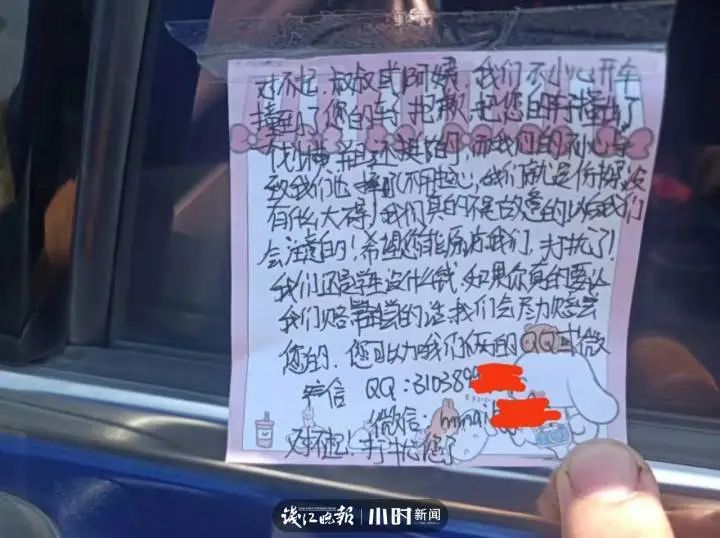 对不起,叔叔或阿姨,我们不小心开车
撞到了你的车了抱歉,把您的车子撞出了
们的不小心
致我们也摔 不用担心,我们就是伤
有什么大碍!我们真的不是故意的以后我们
会注意的!希望您能原谅我们,打扰了!
我们还是学生没什么钱,如果你真的要让
我们赔偿的话,我们会尽力赔偿
您的,您可以加我们俩的QQ或微
信 QQ:310389
微信:
对不起!打扰您了
钱江晚报 小时新闻